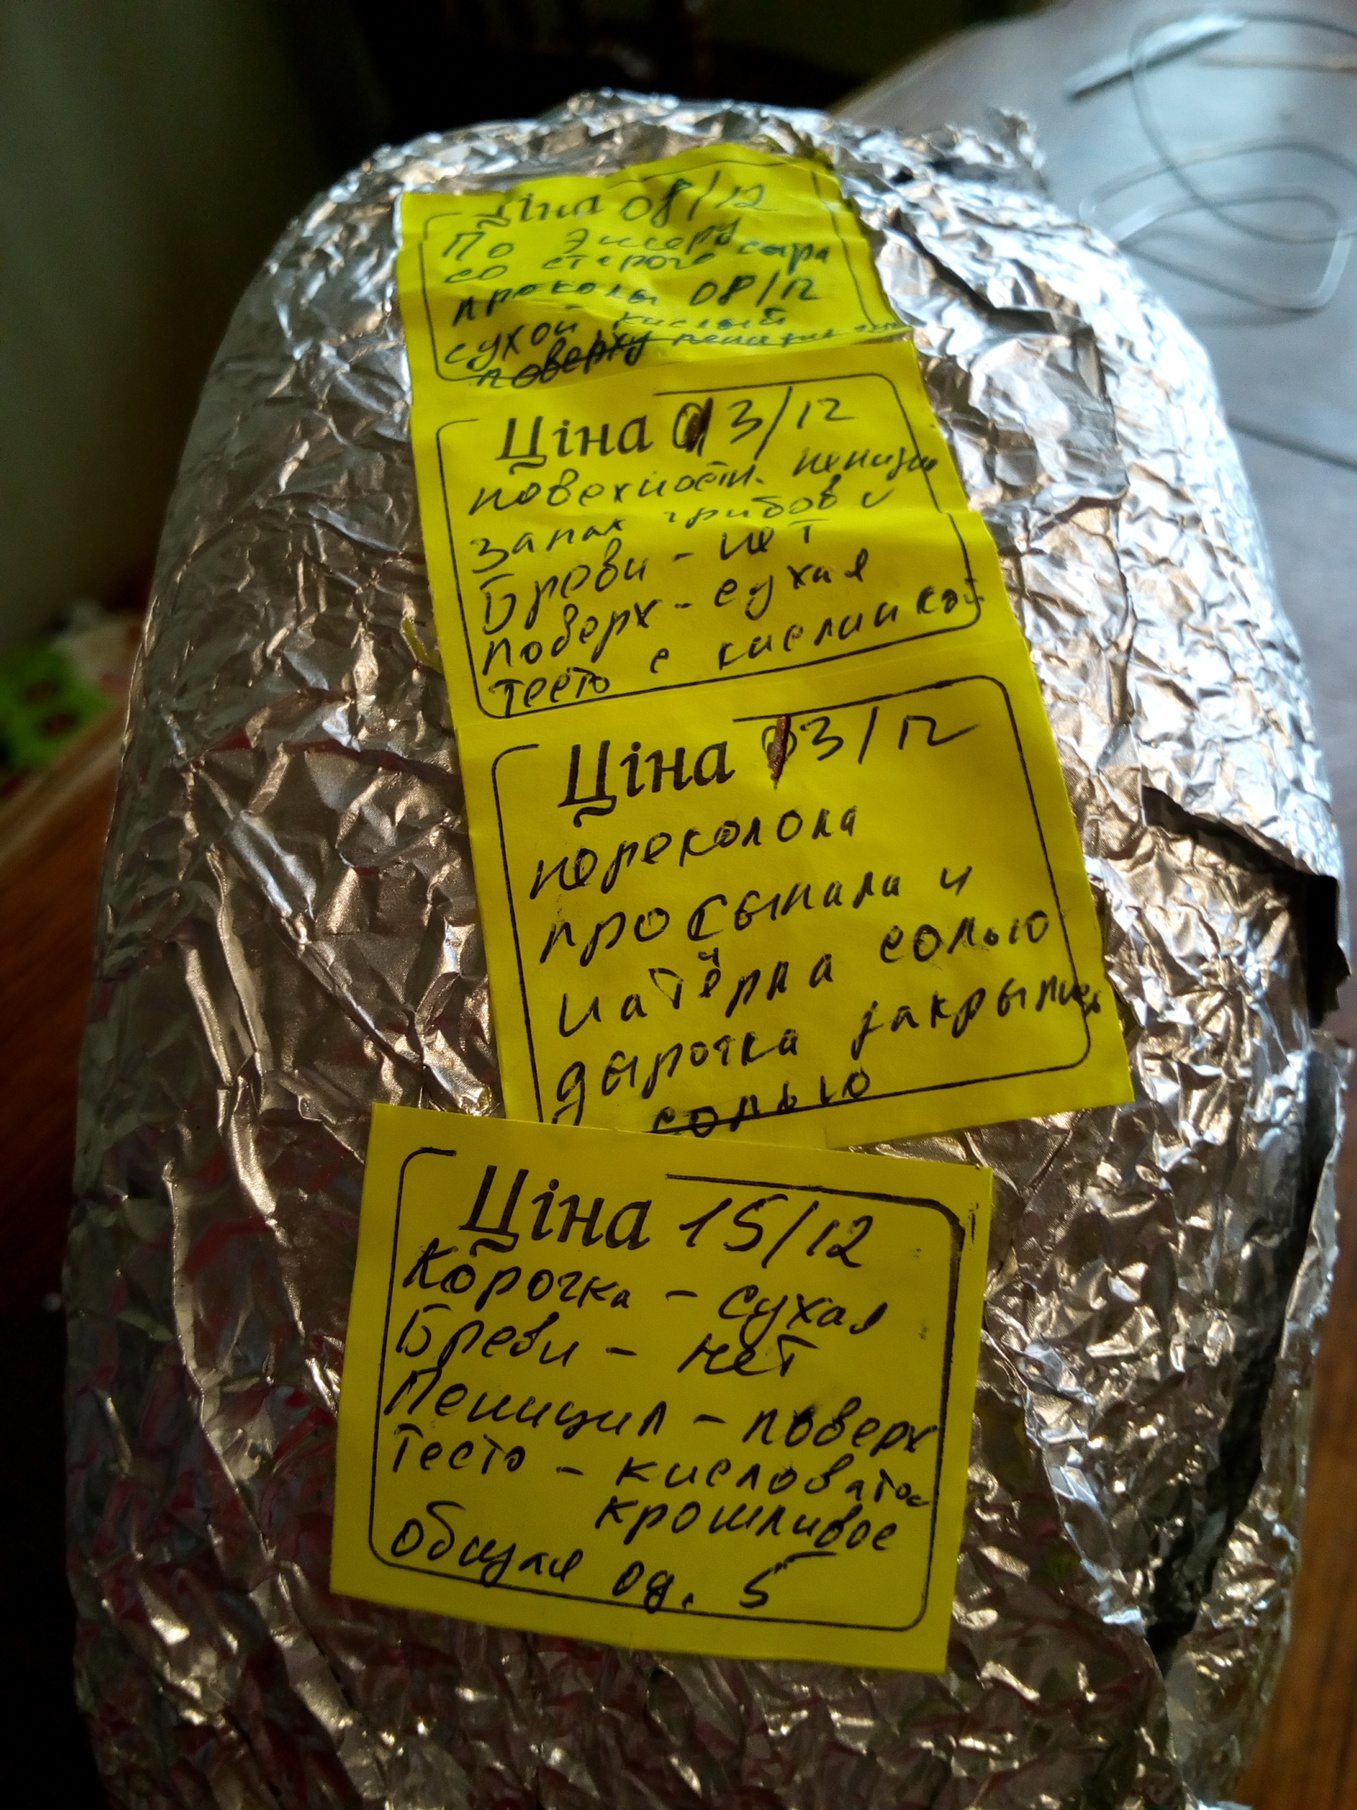 Ціна 08/12
По Энсеру
со старого сыра
проколы 08/12
сухой кислый
поверху
Ціна 13/12
повехности. пеницил
запах грибов и
Бреви - нет
поверх - сухая
тесто с кислинкой
Ціна 13/12
переколола
просыпала и
натёрла солью
дырочка закрылись
солью
Ціна 15/12
Корочка - сухая
Бреви - нет
Пеницил - поверх
Тесто - кисловатое
крошливое
общая оц. 5